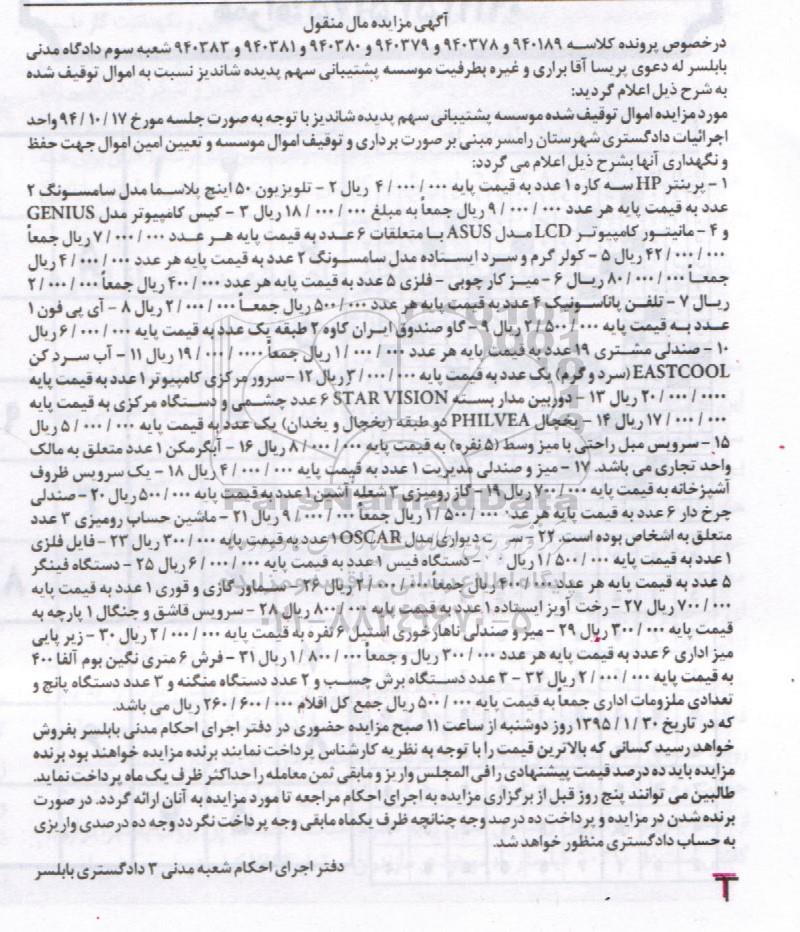 آگهی مزایده مال منقول
درخصوص پرونده کلاسه ۹۴۰۱۸۹ و ۹۴۰۳۷۸ و ۹۴۰۳۷۹ و ۹۴۰۳۸۰ و ۹۴۰۳۸۱ و ۹۴۰۳۸۳ شعبه سوم دادگاه مدنی
بابلسر له دعوی پریسا آقا براری و غیره بطرفیت موسسه پشتیبانی سهم پدیده شاندیز نسبت به اموال توقیف شده
به شرح ذیل اعلام گردید:
مورد مزایده اموال توقیف شده موسسه پشتیبانی سهم پدیده شاندیز با توجه به صورت جلسه مورخ ۹۴/۱۰/۱۷ واحد
اجرائیات دادگستری شهرستان رامسر مبنی بر صورت برداری و توقیف اموال موسسه و تعیین امین اموال جهت حفظ
و نگهداری آنها بشرح ذیل اعلام می گردد:
۱ - پرینتر HP سه کاره ۱ عدد به قیمت پایه ۴/۰۰۰/۰۰۰ ریال ۲ - تلویزیون ۵۰ اینچ پلاسما مدل سامسونگ ۲
عدد به قیمت پایه هر عدد ۹/۰۰۰/۰۰۰ ریال جمعاً به مبلغ ۱۸/۰۰۰/۰۰۰ ریال ۳ - کیس کامپیوتر مدل GENIUS
و ۴ - مانیتور کامپیوتر LCD مدل ASUS با متعلقات ۶ عدد به قیمت پایه هر عدد ۷/۰۰۰/۰۰۰ ریال جمعاً
۴۲/۰۰۰/۰۰۰ ریال ۵ - کولر گرم و سرد ایستاده مدل سامسونگ ۲ عدد به قیمت پایه هر عدد ۴/۰۰۰/۰۰۰ ریال
جمعاً ۸۰/۰۰۰/۰۰۰ ریال ۶ - میز کار چوبی - فلزی ۵ عدد به قیمت پایه هر عدد ۴۰۰/۰۰۰ ریال جمعاً ۲/۰۰۰/۰۰۰
ریال ۷ - تلفن پاناسونیک ۴ عدد به قیمت پایه هر عدد ۵۰۰/۰۰۰ ریال جمعاً ۲/۰۰۰/۰۰۰ ریال ۸ - آی پی فون ۱
عدد به قیمت پایه ۲/۵۰۰/۰۰۰ ریال ۹ - گاو صندوق ایران کاوه ۲ طبقه یک عدد به قیمت پایه ۶/۰۰۰/۰۰۰ ریال
۱۰ - صندلی مشتری ۱۹ عدد به قیمت پایه هر عدد ۱/۰۰۰/۰۰۰ ریال جمعاً ۱۹/۰۰۰/۰۰۰۰ ریال ۱۱ - آب سرد کن
EASTCOOL (سرد و گرم) یک عدد به قیمت پایه ۳/۰۰۰/۰۰۰ ریال ۱۲ - سرور مرکزی کامپیوتر ۱ عدد به قیمت پایه
۲۰/۰۰۰/۰۰۰۰ ریال ۱۳ - دوربین مدار بسته STAR VISION ۶ عدد چشمی و دستگاه مرکزی به قیمت پایه
۱۷/۰۰۰/۰۰۰ ریال ۱۴ - یخچال PHILVEA دو طبقه (یخچال و یخدان) یک عدد به قیمت پایه ۵/۰۰۰/۰۰۰ ریال
۱۵ - سرویس مبل راحتی با میز وسط (۵ نفره) به قیمت پایه ۸/۰۰۰/۰۰۰ ریال ۱۶ - آبگرمکن ۱ عدد متعلق به مالک
واحد تجاری می باشد. ۱۷ - میز و صندلی مدیریت ۱ عدد به قیمت پایه ۴/۰۰۰/۰۰۰ ریال ۱۸ - یک سرویس ظروف
آشپزخانه به قیمت پایه ۷۰۰/۰۰۰ ریال ۱۹ - گاز رومیزی ۳ شعله آشین ۱ عدد به قیمت پایه ۵۰۰/۰۰۰ ریال ۲۰ - صندلی
چرخ دار ۶ عدد به قیمت پایه هر عدد ۱/۵۰۰/۰۰۰ ریال جمعاً ۹/۰۰۰/۰۰۰ ریال ۲۱ - ماشین حساب رومیزی ۳ عدد
متعلق به اشخاص بوده است. ۲۲ - دیواری مدل OSCAR ۱ عدد به قیمت پایه ۳۰۰/۰۰۰ ریال ۲۳ - فایل فلزی
۱ عدد به قیمت پایه ۱/۵۰۰/۰۰۰ ریال - دستگاه فیس ۱ عدد به قیمت پایه ۶/۰۰۰/۰۰۰ ریال ۲۵ - دستگاه فینگر
۵ عدد به قیمت پایه هر عدد ریال جمعاً ۲/۰۰۰/۰۰۰ ریال ۲۶ - سماور گازی و قوری ۱ عدد به قیمت پایه
۷۰۰/۰۰۰ ریال ۲۷ - رخت آویز ایستاده ۱ عدد به قیمت پایه ۸۰۰/۰۰۰ ریال ۲۸ - سرویس قاشق و چنگال ۱ پارچه به
قیمت پایه ۳۰۰/۰۰۰ ریال ۲۹ - میز و صندلی ناهارخوری استیل ۶ نفره به قیمت پایه ۲/۰۰۰/۰۰۰ ریال ۳۰ - زیر پایی
میز اداری ۶ عدد به قیمت پایه هر عدد ۳۰۰/۰۰۰ ریال و جمعاً ۱/۸۰۰/۰۰۰ ریال ۳۱ - فرش ۶ متری نگین بوم آلفا ۴۰۰
به قیمت پایه ۲/۰۰۰/۰۰۰ ریال ۳۲ - ۳ عدد دستگاه برش چسب و ۲ عدد دستگاه منگنه و ۳ عدد دستگاه پانچ و
تعدادی ملزومات اداری جمعاً به قیمت پایه ۵۰۰/۰۰۰ ریال جمع کل اقلام ۲۶۰/۶۰۰/۰۰۰ ریال می باشد.
که در تاریخ ۱۳۹۵/۱/۳۰ روز دوشنبه از ساعت ۱۱ صبح مزایده حضوری در دفتر اجرای احکام مدنی بابلسر بفروش
خواهد رسید کسانی که بالاترین قیمت را با توجه به نظریه کارشناس پرداخت نمایند برنده مزایده خواهند بود برنده
مزایده باید ده درصد قیمت پیشنهادی را فی المجلس واریز و مابقی ثمن معامله را حداکثر ظرف یک ماه پرداخت نماید.
طالبین می توانند پنج روز قبل از برگزاری مزایده به اجرای احکام مراجعه تا مورد مزایده به آنان ارائه گردد. در صورت
برنده شدن در مزایده و پرداخت ده درصد وجه چنانچه ظرف یکماه مابقی وجه پرداخت نگردد وجه ده درصدی واریزی
به حساب دادگستری منظور خواهد شد.
دفتر اجرای احکام شعبه مدنی ۳ دادگستری بابلسر
T
ParsNamadData
۰۲۱-۸۸۳۴۹۶۷۰-۵